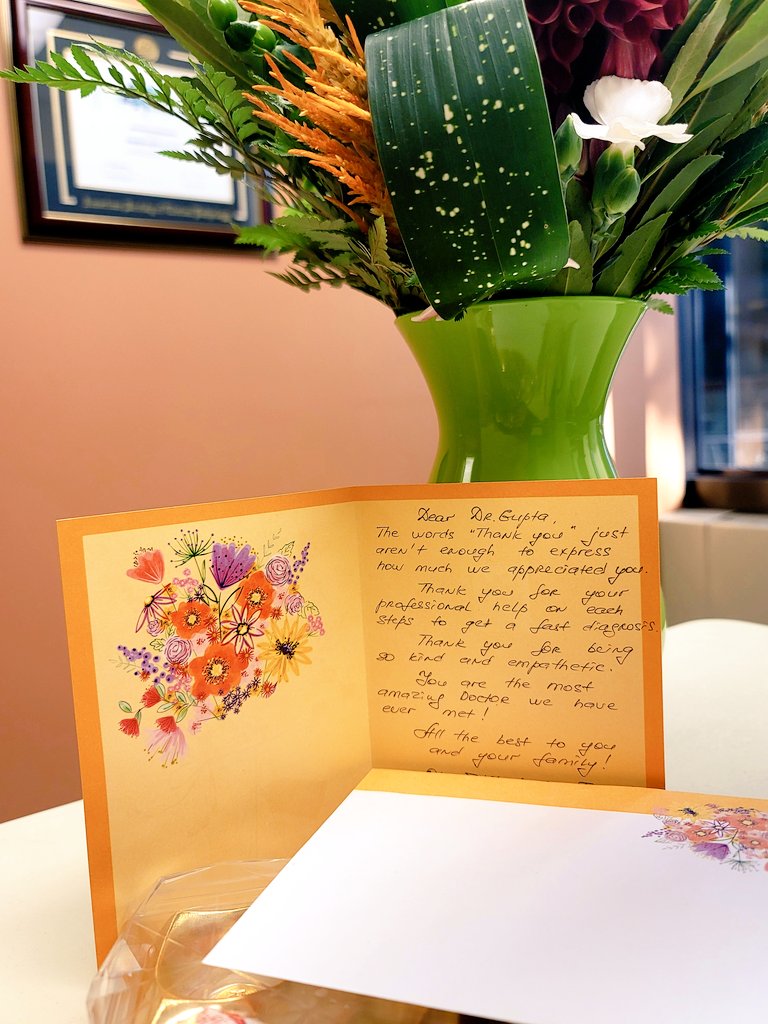 Dear Dr. Gupta,
The words "Thank you" just
aren't enough to express
how much we appreciated you.
Thank you for your
professional help on each
steps to get a fast diagnosis.
Thank you for being
so kind and empathetic.
You are the most
amazing Doctor we have
ever met!
All the best to you
and your family!